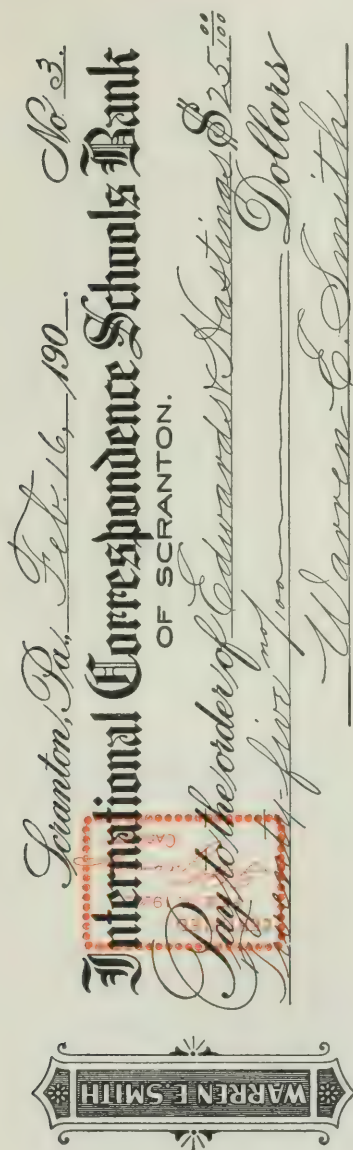 WARREN E. SMITH
Scranton, Pa., Feb. 16, 190_. No. 3.
International Correspondence Schools Bank
OF SCRANTON.
Pay to the order of Edwards & Hastings $25.00/100
Twenty-five no/100 Dollars
Warren E. Smith
CERTIFIED